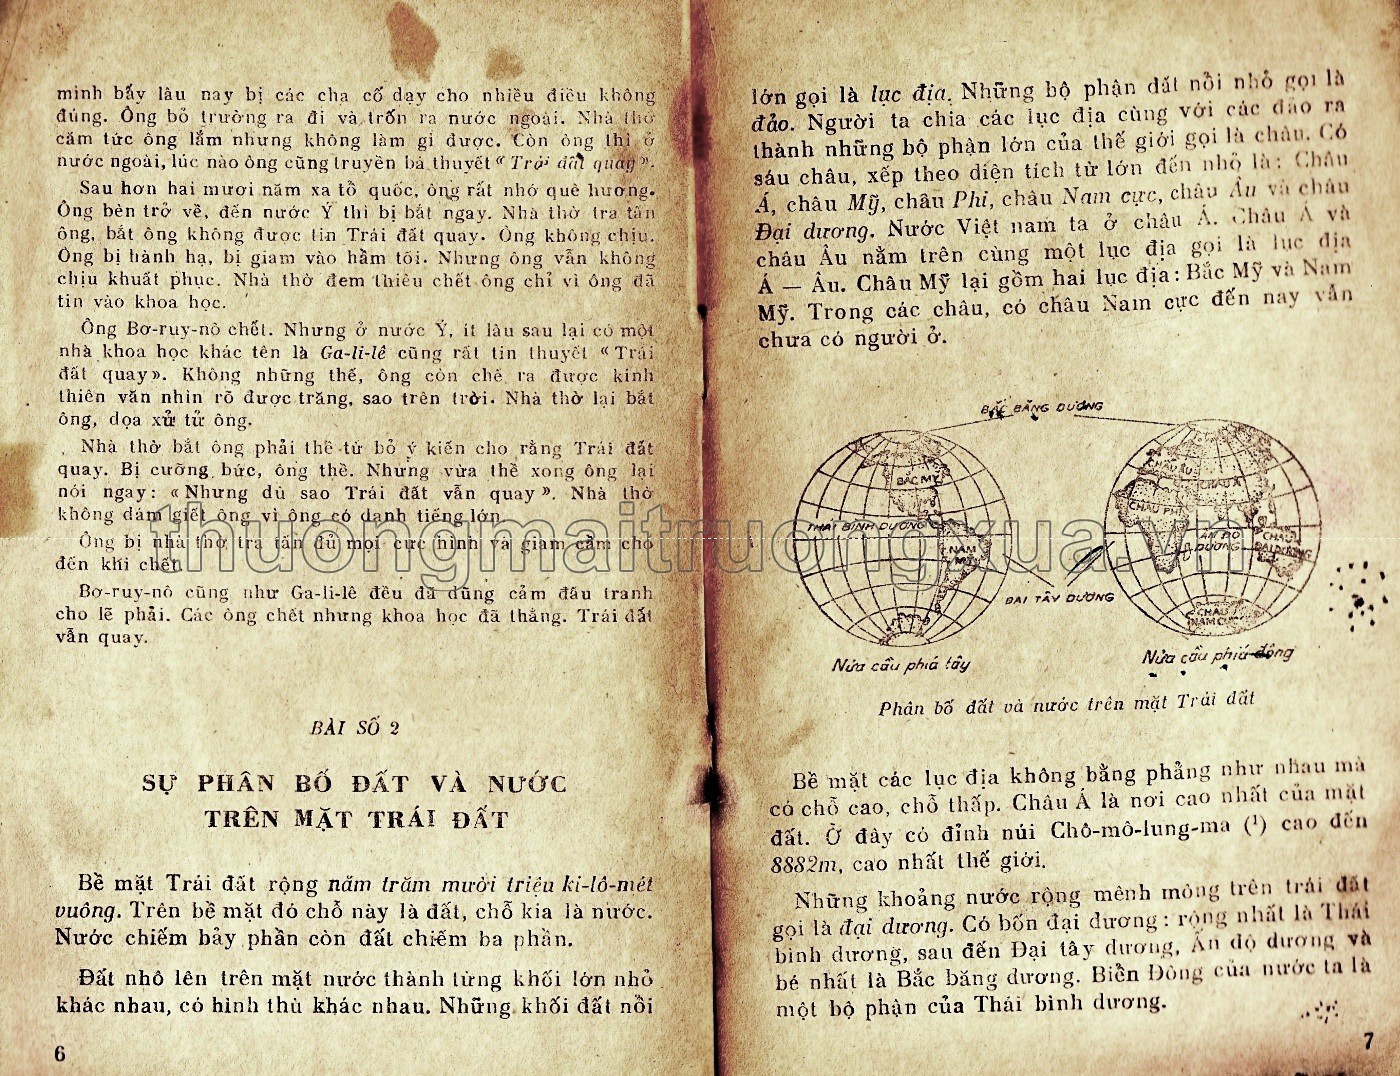 mình bấy lâu nay bị các cha cố dạy cho nhiều điều không
đúng. Ông bỏ trường ra đi và trốn ra nước ngoài. Nhà thờ
căm tức ông lắm nhưng không làm gì được. Còn ông thì ở
nước ngoài, lúc nào ông cũng truyền bá thuyết « Trái đất quay ».
Sau hơn hai mươi năm xa tổ quốc, ông rất nhớ quê hương.
Ông bèn trở về, đến nước Ý thì bị bắt ngay. Nhà thờ tra tấn
ông, bắt ông không được tin Trái đất quay. Ông không chịu.
Ông bị hành hạ, bị giam vào hầm tối. Nhưng ông vẫn không
chịu khuất phục. Nhà thờ đem thiêu chết ông chỉ vì ông đã
tin vào khoa học.
Ông Bơ-ruy-nô chết. Nhưng ở nước Ý, ít lâu sau lại có một
nhà khoa học khác tên là Ga-li-lê cũng rất tin thuyết « Trái
đất quay ». Không những thế, ông còn chế ra được kính
thiên văn nhìn rõ được trăng, sao trên trời. Nhà thờ lại bắt
ông, dọa xử tử ông.
Nhà thờ bắt ông phải thề từ bỏ ý kiến cho rằng Trái đất
quay. Bị cưỡng bức, ông thề. Nhưng vừa thề xong ông lại
nói ngay : « Nhưng dù sao Trái đất vẫn quay ». Nhà thờ
không dám giết ông vì ông có danh tiếng lớn.
Ông bị nhà thờ tra tấn đủ mọi cực hình và giam cầm cho
đến khi chết.
Bơ-ruy-nô cũng như Ga-li-lê đều đã dũng cảm đấu tranh
cho lẽ phải. Các ông chết nhưng khoa học đã thắng. Trái đất
vẫn quay.
BÀI SỐ 2
SỰ PHÂN BỐ ĐẤT VÀ NƯỚC
TRÊN MẶT TRÁI ĐẤT
Bề mặt Trái đất rộng năm trăm mười triệu ki-lô-mét
vuông. Trên bề mặt đó chỗ này là đất, chỗ kia là nước.
Nước chiếm bảy phần còn đất chiếm ba phần.
Đất nhô lên trên mặt nước thành từng khối lớn nhỏ
khác nhau, có hình thù khác nhau. Những khối đất nổi
6
lớn gọi là lục địa. Những bộ phận đất nổi nhỏ gọi là
đảo. Người ta chia các lục địa cùng với các đảo ra
thành những bộ phận lớn của thế giới gọi là châu. Có
sáu châu, xếp theo diện tích từ lớn đến nhỏ là : Châu
Á, châu Mỹ, châu Phi, châu Nam cực, châu Âu và châu
Đại dương. Nước Việt nam ta ở châu Á. Châu Á và
châu Âu nằm trên cùng một lục địa gọi là lục địa
Á — Âu. Châu Mỹ lại gồm hai lục địa : Bắc Mỹ và Nam
Mỹ. Trong các châu, có châu Nam cực đến nay vẫn
chưa có người ở.
BẮC BĂNG DƯƠNG
BẮC MỸ
THÁI BÌNH DƯƠNG
NAM
MỸ
ĐẠI TÂY DƯƠNG
CHÂU ÂU
CHÂU Á
CHÂU PHI
ẤN ĐỘ
DƯƠNG
CHÂU
ĐẠI DƯƠNG
CHÂU
NAM CỰC
Nửa cầu phía tây
Nửa cầu phía đông
Phân bố đất và nước trên mặt Trái đất
Bề mặt các lục địa không bằng phẳng như nhau mà
có chỗ cao, chỗ thấp. Châu Á là nơi cao nhất của mặt
đất. Ở đây có đỉnh núi Chô-mô-lung-ma (¹) cao đến
8882m, cao nhất thế giới.
Những khoảng nước rộng mênh mông trên trái đất
gọi là đại dương. Có bốn đại dương : rộng nhất là Thái
bình dương, sau đến Đại tây dương, Ấn độ dương và
bé nhất là Bắc băng dương. Biển Đông của nước ta là
một bộ phận của Thái bình dương.
7
thuongmaitruongxua.vn